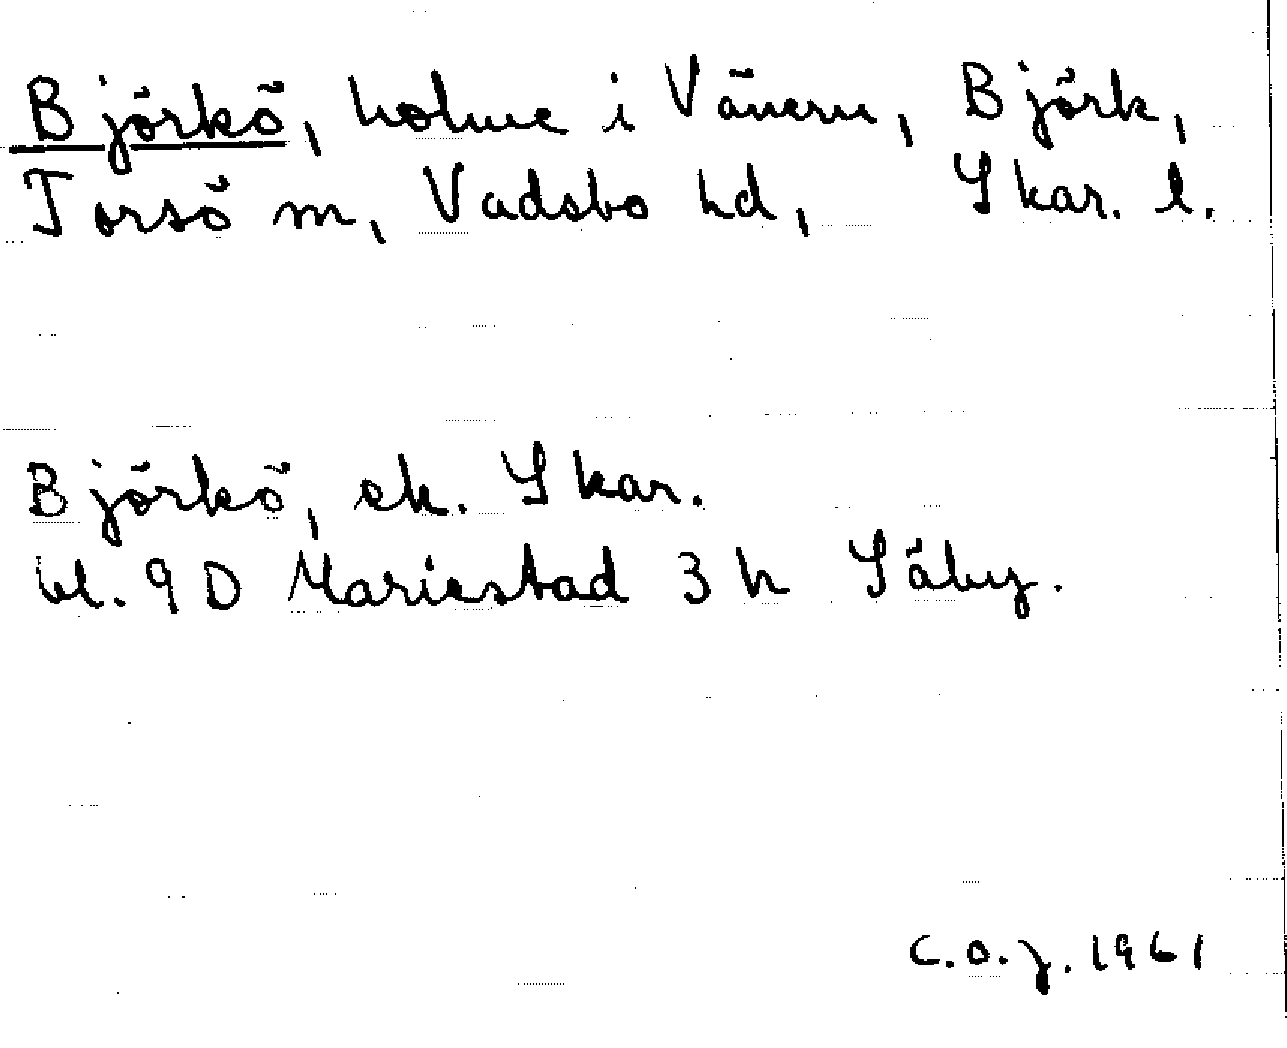 Björkö, holme i Vänern, Björk,
Torsö m, Vadsbo hd, Skar. l.
Björkö, ek. Skar.
bl. 9 D Mariestad 3 h Säby.
C.O.J. 1961